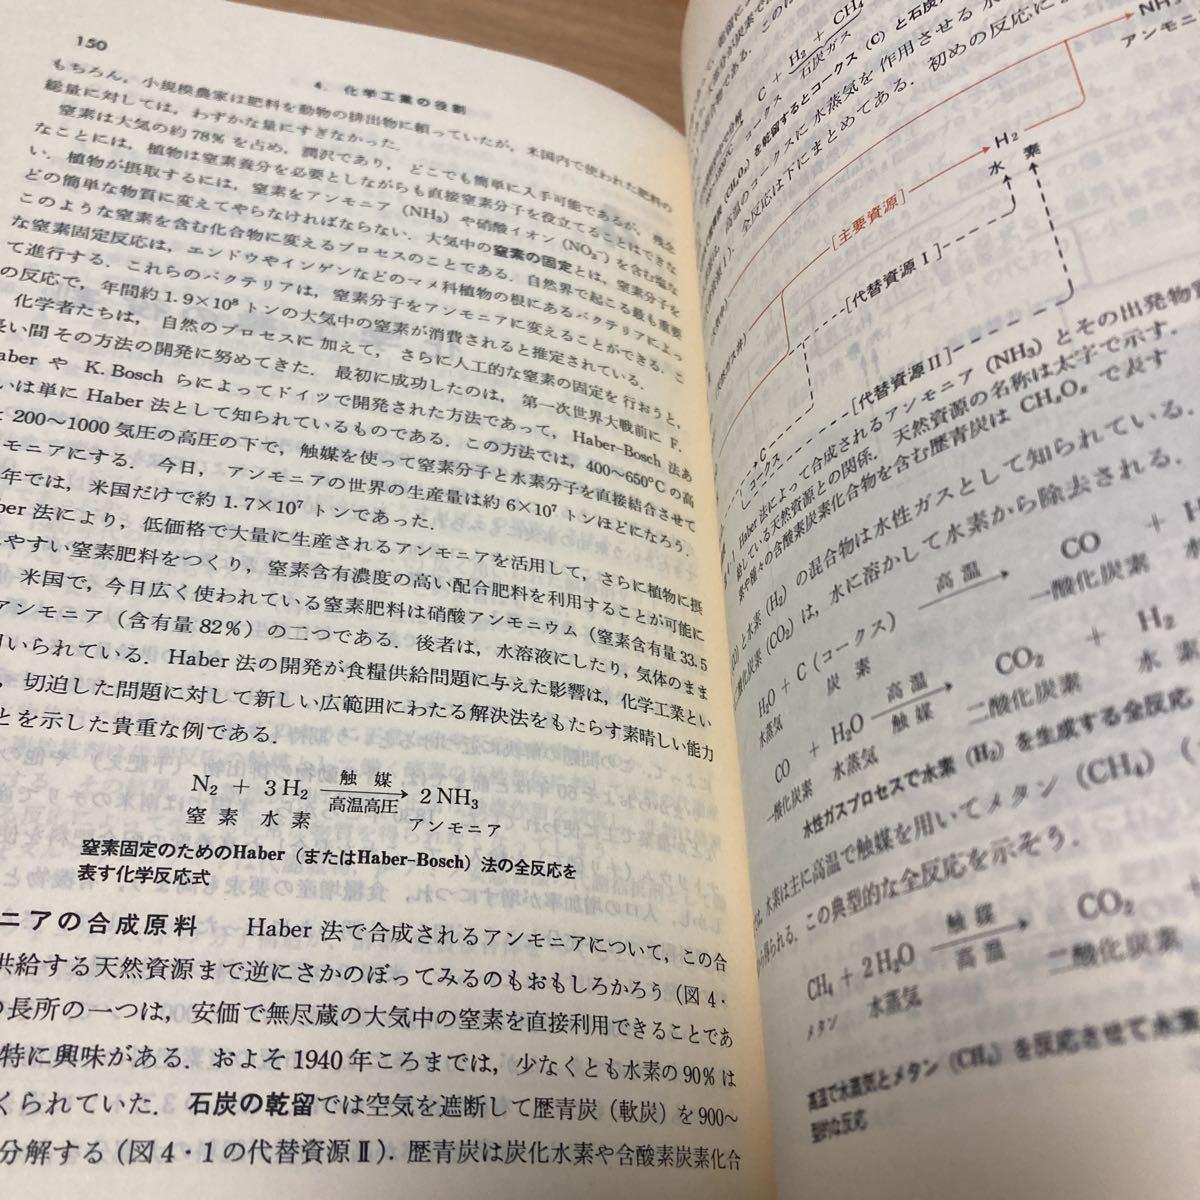 150
4. 化学工業の役割
もちろん，小規模農家は肥料を動物の排出物に頼っていたが，米国内で使われた肥料の
総量に対しては，わずかな量にすぎなかった．
窒素は大気の約78％を占め，潤沢であり，どこでも簡単に入手可能であるが，残念
なことには，植物は窒素養分を必要としながらも直接窒素分子を役立てることはできな
い．植物が摂取するには，窒素をアンモニア（NH₃）や硝酸イオン（NO₃⁻）を含む塩な
どの簡単な物質に変えてやらなければならない．大気中の窒素の固定とは，窒素分子を
このような窒素を含む化合物に変えるプロセスのことである．自然界で起こる最も重要
な窒素固定反応は，エンドウやインゲンなどのマメ科植物の根にあるバクテリアによっ
て進行する．これらのバクテリアは，窒素分子をアンモニアに変えることができる．こ
の反応で，年間約1.9×10⁸トンの大気中の窒素が消費されると推定されている．
化学者たちは，自然のプロセスに加えて，さらに人工的な窒素の固定を行おうと，
長い間その方法の開発に努めてきた．最初に成功したのは，第一次世界大戦前にF.
Haber や K. Bosch らによってドイツで開発された方法であって，Haber-Bosch 法あ
いは単に Haber 法として知られているものである．この方法では，400〜650℃の高
200〜1000気圧の高圧の下で，触媒を使って窒素分子と水素分子を直接結合させて
ンモニアにする．今日，アンモニアの世界の生産量は約6×10⁷トンほどになろう．
年では，米国だけで約1.7×10⁷トンであった．
ber 法により，低価格で大量に生産されるアンモニアを活用して，さらに植物に摂
しやすい窒素肥料をつくり，窒素含有濃度の高い配合肥料を利用することが可能に
米国で，今日広く使われている窒素肥料は硝酸アンモニウム（窒素含有量33.5
アンモニア（含有量82％）の二つである．後者は，水溶液にしたり，気体のまま
いられている．Haber 法の開発が食糧供給問題に与えた影響は，化学工業とい
，切迫した問題に対して新しい広範囲にわたる解決法をもたらす素晴しい能力
とを示した貴重な例である．
N₂ + 3H₂ 触媒 高温高圧 → 2NH₃
窒素 水素 アンモニア
窒素固定のためのHaber（またはHaber-Bosch）法の全反応を
表す化学反応式
ニアの合成原料 Haber 法で合成されるアンモニアについて，この合
供給する天然資源まで逆にさかのぼってみるのもおもしろかろう（図4・
の長所の一つは，安価で無尽蔵の大気中の窒素を直接利用できることであ
特に興味がある．およそ1940年ころまでは，少なくとも水素の90％は
くられていた．石炭の乾留では空気を遮断して歴青炭（軟炭）を900〜
分解する（図4・1の代替資源Ⅱ）．歴青炭は炭化水素や含酸素炭素化合
C + H₂ + CH₄
コークス 石炭ガス
を乾留するとコークス（C）と石炭ガ
高温のコークスに水蒸気を作用させる
全反応は下にまとめてある．初めの反応に
NH₃
アンモニ
H₂
水素
［主要資源］
［代替資源Ⅰ］
［代替資源Ⅱ］
C
コークス
Haber 法によって合成されるアンモニア（NH₃）とその出発物質
給している天然資源との関係．天然資源の名称は太字で示す．
種々の含酸素炭素化合物を含む歴青炭は CHₓOᵧ で表す
と水素（H₂）の混合物は水性ガスとして知られている．
炭素（CO₂）は，水に溶かして水素から除去される．
H₂O + C（コークス） 高温 → CO + H
水蒸気 炭素 一酸化炭素 水
CO + H₂O 高温 触媒 → CO₂ + H₂
一酸化炭素 水蒸気 二酸化炭素 水素
水性ガスプロセスで水素（H₂）を生成する全反応
水素は主に高温で触媒を用いてメタン（CH₄）（
得られる．この典型的な全反応を示そう．
CH₄ + 2H₂O 触媒 高温 → CO₂ +
メタン 水蒸気 二酸化炭素
高温で水蒸気とメタン（CH₄）を反応させて水素
型的な反応